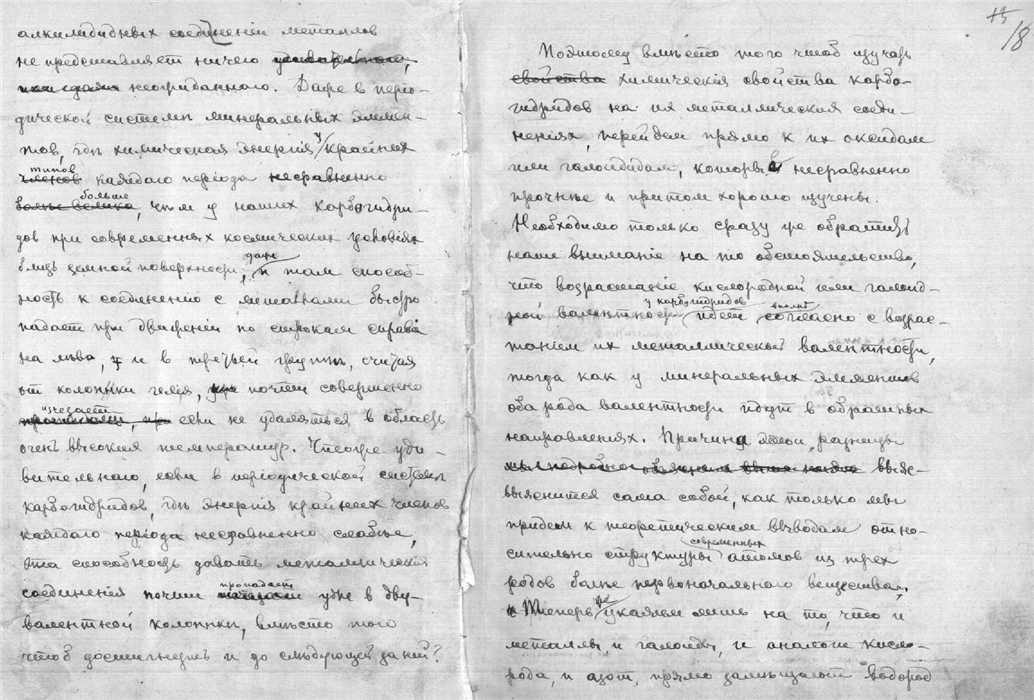 алкилидныхъ соединеній металловъ
не представляетъ ничего
неожиданнаго. Даже в періо-
дической системѣ минеральныхъ элемен-
товъ, гдѣ химическая энергія у крайнихъ
типовъ каждаго періода несравненно
больше, чѣмъ у нашихъ карбогидри-
довъ при современныхъ космическихъ условіяхъ
близъ земной поверхности, даже и тамъ способ-
ность к соединенію с металлами быстро
падаетъ при движеніи по строкамъ справа
на лѣво, и в третьей группѣ, считая
отъ колонки гелія, почти совершенно
изчезаетъ, если не удаляться в область
очень высокихъ температуръ. Что же уди-
вительнаго, если в періодической системѣ
карбогидридовъ, гдѣ энергія крайнихъ членовъ
каждаго періода несравненно слабѣе,
эта способность давать металлическія
соединенія почти пропадаетъ уже в дву-
валентной колонкѣ, вмѣсто того
чтобъ достигнуть и до слѣдующей за ней?
18
Поэтому вмѣсто того чтоб изучать
свойства химическія свойства карбо-
гидридов на их металлическихъ соеди-
неніяхъ, перейдем прямо к их оксидам
или галоидидам, которые несравненно
прочнѣе и притом хорошо изучены.
Необходимо только сразу же обратить
наше вниманіе на то обстоятельство,
что возрастаніе кислородной или галоид-
ной валентности у карбогидридов идет вполнѣ согласно с возрас-
таніем их металлической валентности,
тогда как у минеральныхъ элементов
оба рода валентности идут в обратных
направленіяхъ. Причина этой разницы
выяс-
выяснится сама собой, как только мы
придем к теоретическим выводам отно-
сительно структуры современныхъ атомов из трех
родов болѣе первоначального вещества.
Теперь же укажем лишь на то, что и
металлы, и галоиды, и аналоги кисло-
рода, и азот, прямо замѣщают водород